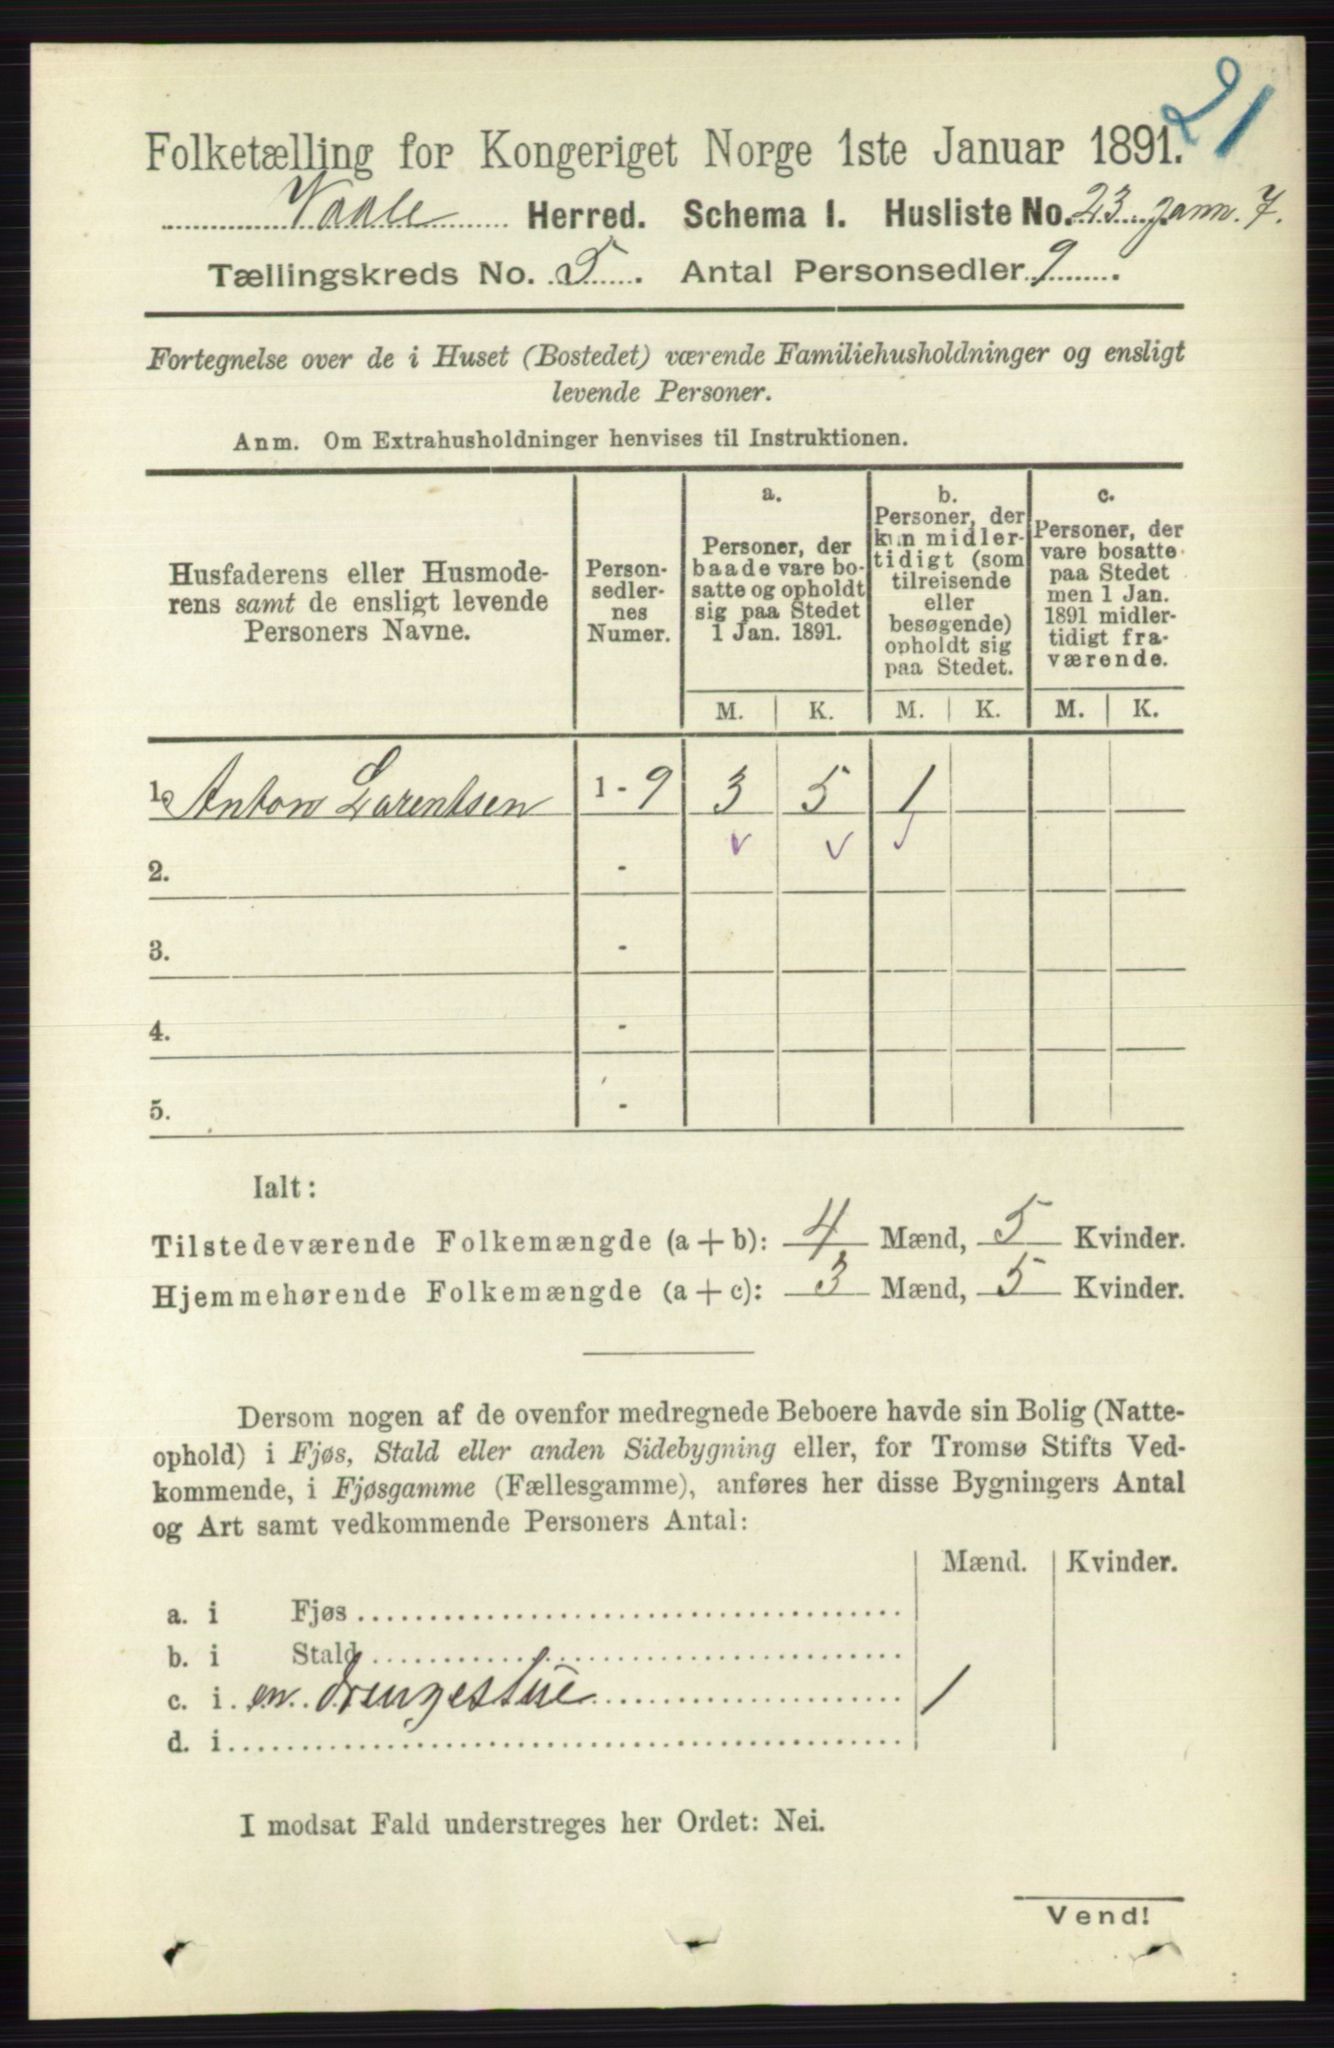 21
Folketælling for Kongeriget Norge 1ste Januar 1891.
Vaale Herred. Schema I. Husliste No. 23
Tællingskreds No. 5. Antal Personsedler 9.
Fortegnelse over de i Huset (Bostedet) værende Familiehusholdninger og ensligt
levende Personer.
Anm. Om Extrahusholdninger henvises til Instruktionen.
Husfaderens eller Husmode-
rens samt de ensligt levende
Personers Navne.
Person-
sedler-
nes
Numer.
a.
Personer, der
baade vare bo-
satte og opholdt
sig paa Stedet
1 Jan. 1891.
b.
Personer, der
kun midler-
tidigt (som
tilreisende
eller
besøgende)
opholdt sig
paa Stedet.
c.
Personer, der
vare bosatte
paa Stedet
men 1 Jan.
1891 midler-
tidigt fra-
værende.
M. K. M. K. M. K.
1. Anton Larentsen 1 - 9 3 5 1
2. -
3. -
4. -
5. -
Ialt:
Tilstedeværende Folkemængde (a + b): 4 Mænd, 5 Kvinder.
Hjemmehørende Folkemængde (a + c): 3 Mænd, 5 Kvinder.
Dersom nogen af de ovenfor medregnede Beboere havde sin Bolig (Natte-
ophold) i Fjøs, Stald eller anden Sidebygning eller, for Tromsø Stifts Ved-
kommende, i Fjøsgamme (Fællesgamme), anføres her disse Bygningers Antal
og Art samt vedkommende Personers Antal:
Mænd. Kvinder.
a. i Fjøs
b. i Stald
c. i en drengestue 1
d. i
I modsat Fald understreges her Ordet: Nei.
Vend!